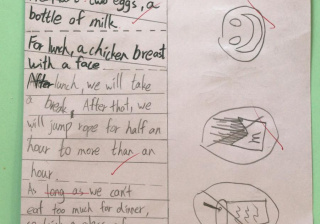 two eggs, a
bottle of milk
For lunch, a chicken breast
with a face
After lunch, we will take
a break. After that, we
will jump rope for half an
hour to more than an
hour.
As long as we can't
eat too much for dinner,